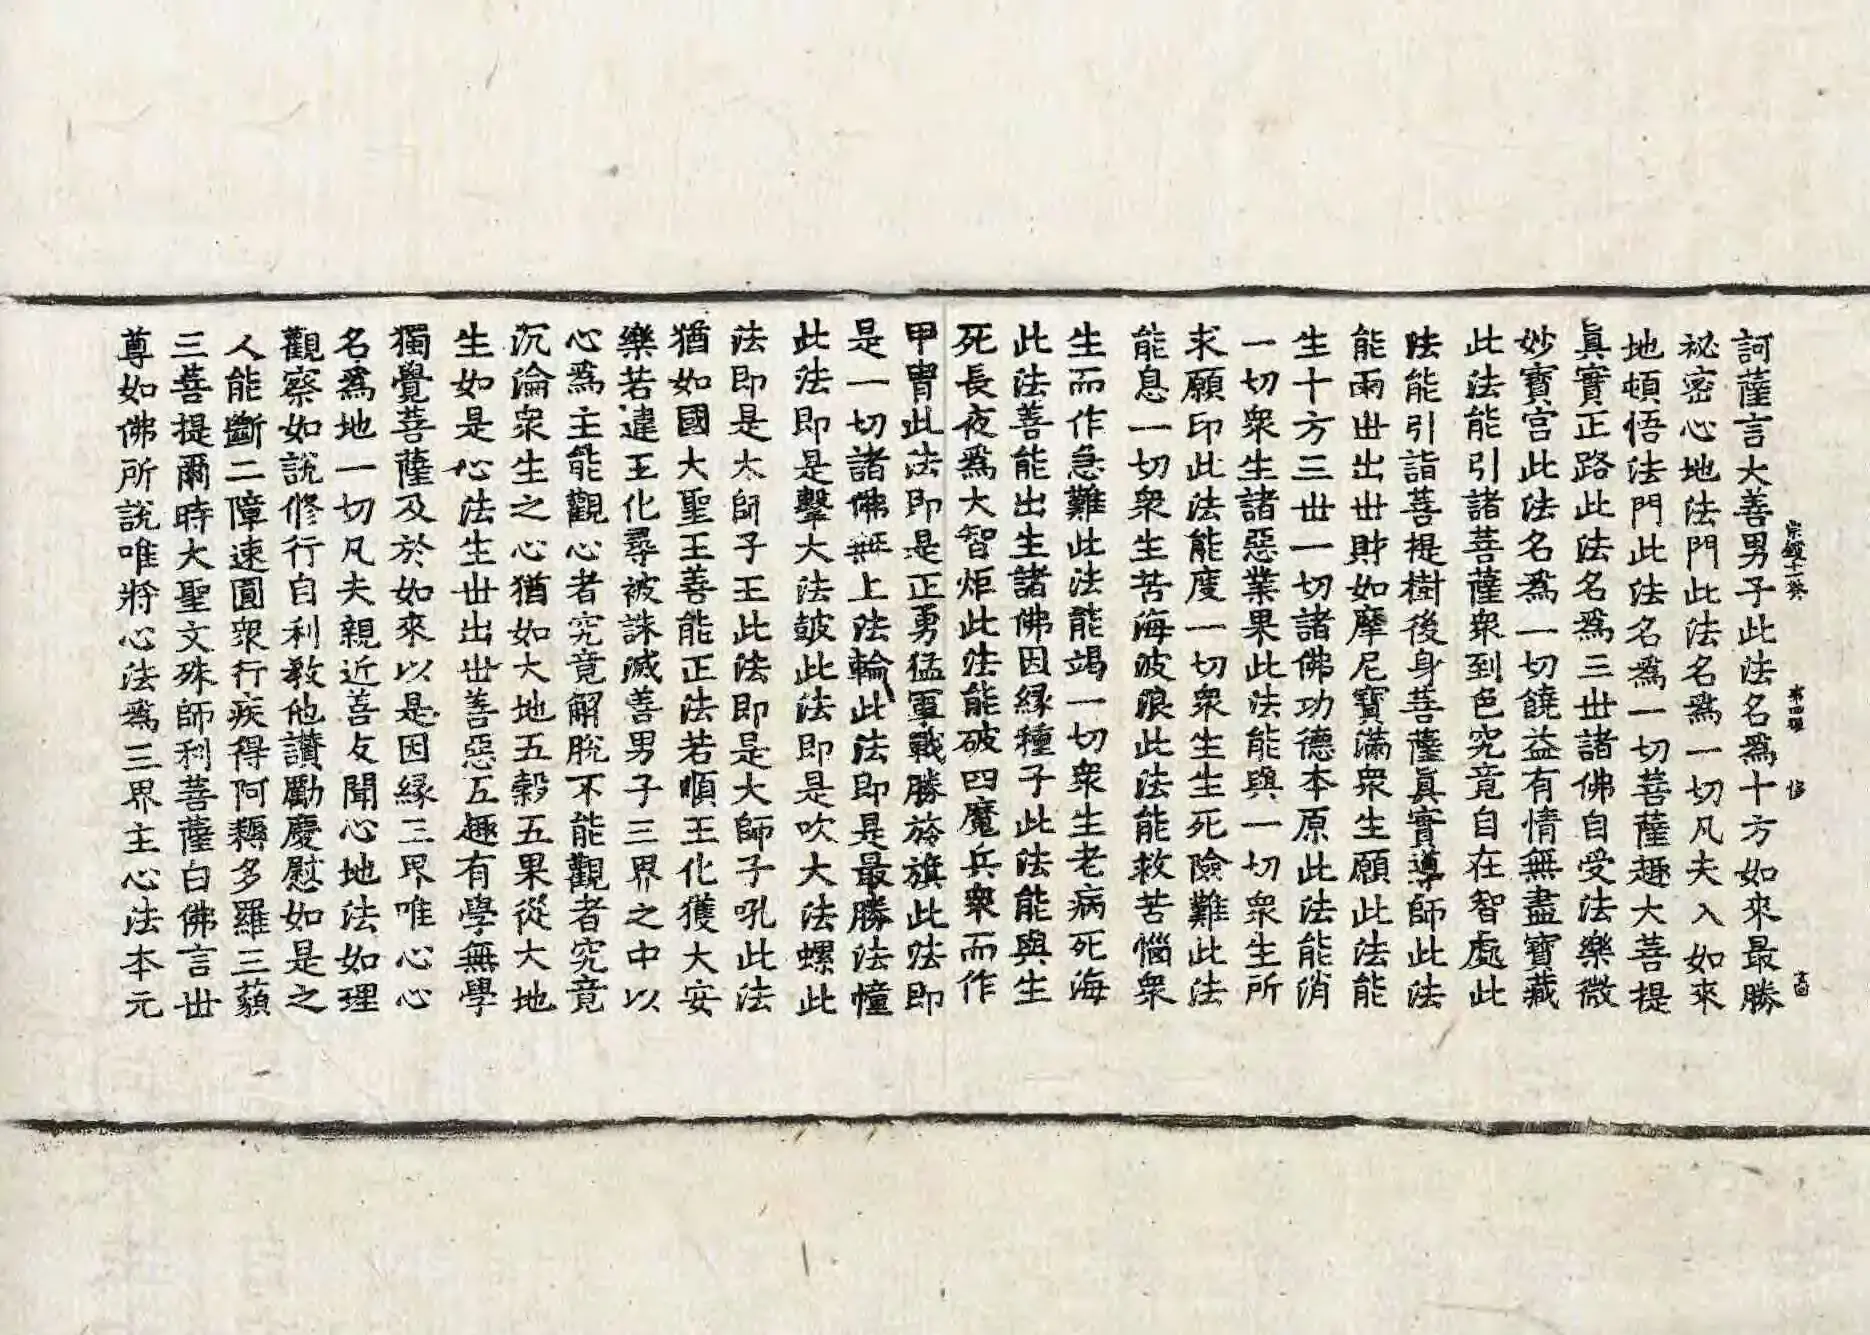 訶薩言大善男子此法名爲十方如來最勝
祕密心地法門此法名爲一切凡夫入如來
地頓悟法門此法名爲一切菩薩趣大菩提
眞實正路此法名爲三世諸佛自受法樂微
妙寶宮此法名爲一切饒益有情無盡寶藏
此法能引諸菩薩衆到色究竟自在智處此
法能引詣菩提樹後身菩薩眞實導師此法
能雨世出世財如摩尼寶滿衆生願此法能
生十方三世一切諸佛功德本原此法能消
一切衆生諸惡業果此法能與一切衆生所
求願印此法能度一切衆生生死險難此法
能息一切衆生苦海波浪此法能救苦惱衆
生而作急難此法能竭一切衆生老病死海
此法善能出生諸佛因縁種子此法能與生
死長夜爲大智炬此法能破四魔兵衆而作
甲冑此法即是正勇猛軍戰勝旍旗此法即
是一切諸佛無上法輪此法即是最勝法幢
此法即是擊大法鼓此法即是吹大法螺此
法即是太師子王此法即是大師子吼此法
猶如國大聖王善能正法若順王化獲大安
樂若違王化尋被誅滅善男子三界之中以
心爲主能觀心者究竟解脫不能觀者究竟
沉淪衆生之心猶如大地五穀五果從大地
生如是心法生世出世善惡五趣有學無學
獨覺菩薩及於如來以是因縁三界唯心心
名爲地一切凡夫親近善友聞心地法如理
觀察如說修行自利教他讚勵慶慰如是之
人能斷二障速圓衆行疾得阿耨多羅三藐
三菩提爾時大聖文殊師利菩薩白佛言世
尊如佛所說唯將心法爲三界主心法本元